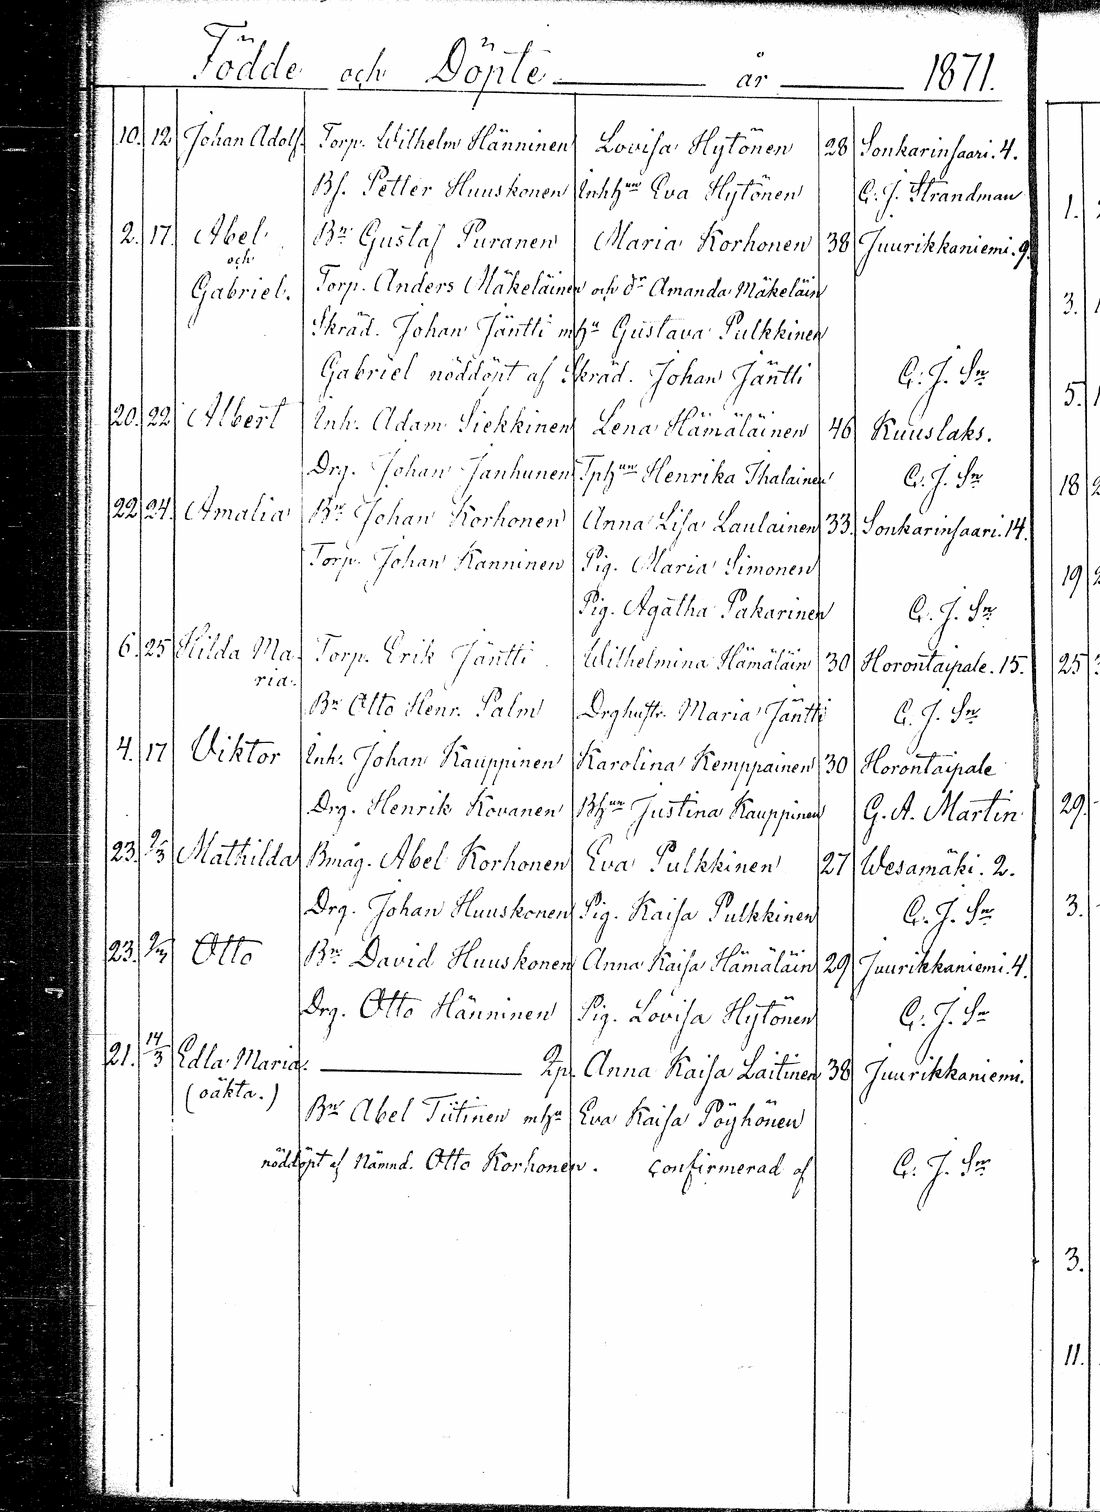 Födde och Döpte år 1871.
10. 12 Johan Adolf. Torp. Wilhelm Hänninen Lovisa Hytönen 28 Sonkarinsaari. 4.
Bs. Petter Huuskonen Inhh:un Eva Hytönen C. J. Strandman
2. 17. Abel Bn Gustaf Puranen Maria Korhonen 38 Juurikkaniemi. 9.
och
Gabriel. Torp. Anders Mäkeläinen och dr Amanda Mäkeläin
Skräd. Johan Jäntti mh:u Gustava Pulkkinen
Gabriel nöddöpt af Skräd. Johan Jäntti C. J. Sn
20. 22 Albert Inh. Adam Siekkinen Lena Hämäläinen 46 Kuuslaks.
Drg. Johan Janhunen Tph:un Henrika Ihalainen C. J. Sn
22 24. Amalia Bn Johan Korhonen Anna Lisa Laulainen 33. Sonkarinsaari. 14.
Torp. Johan Kanninen Pig. Maria Simonen
Pig. Agatha Pakarinen C. J. Sn
6. 25 Hilda Ma- Torp. Erik Jäntti Wilhelmina Hämäläin 30 Horontaipale. 15.
ria.
Bn Otto Henr. Palm Drghustr. Maria Jäntti C. J. Sn
4. 17 Viktor Inh. Johan Kauppinen Karolina Kemppainen 30 Horontaipale
Drg. Henrik Kovanen Bh:un Justina Kauppinen G. A. Martin
23. 2/3 Mathilda Bmåg. Abel Korhonen Eva Pulkkinen 27 Wesamäki. 2.
Drg. Johan Huuskonen Pig. Kaisa Pulkkinen C. J. Sn
23. Otto Bn David Huuskonen Anna Kaisa Hämäläin 29 Juurikkaniemi. 4.
Drg. Otto Hänninen Pig. Lovisa Hytönen C. J. Sn
21. 14/3 Edla Maria. Qp. Anna Kaisa Laitinen 38 Juurikkaniemi.
(oäkta.)
Bn Abel Tiitinen mh:u Eva Kaisa Pöyhönen
nöddöpt af Nämnd. Otto Korhonen. confirmerad af C. J. Sn
1.
3.
5.
18
19
25
29.
3.
3.
11.